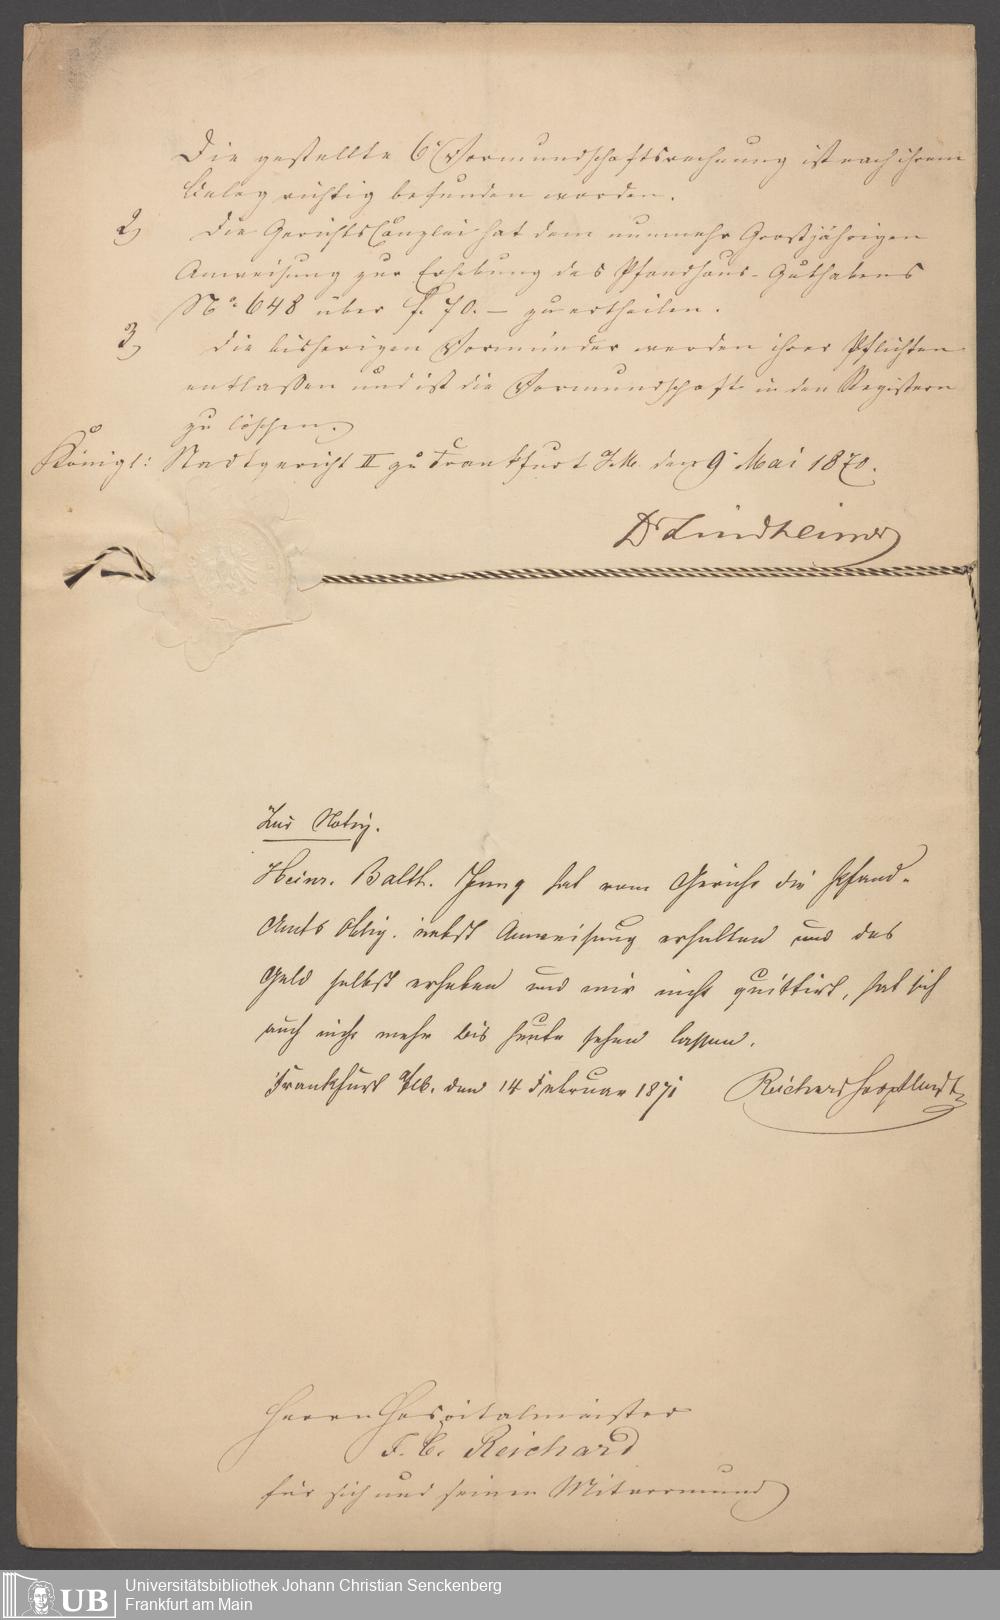 Die gestellte 6te Vormundschaftsrechnung ist nach ihrem
Beleg richtig befunden worden.
2) Die Gerichts Canzlei hat dem nunmehr Grosjährigen
Anweisung zur Erhebung des Pfandhaus-Guthabens
No 648 über f. 70. – zu ertheilen.
3) Die bisherigen Vormünder werden ihrer Pflichten
entlassen und ist die Vormundschaft in den Registern
zu löschen.
Königl: Stadtgericht II zu Frankfurt a/M. den 9 Mai 1870.
Dr Lindheimer
Zur Notiz.
Heinr. Balth. Jung hat vom Gericht die Pfand-
Amts Oblig. nebst Anweisung erhalten und das
Geld selbst erhoben und mir nicht quittirt, hat sich
auch nicht mehr bis heute sehen lassen.
Frankfurt a/M. den 14 Februar 1871
Herrn Hospitalmeister
F. C. Reichard
für sich und seinen Mitvormund
Universitätsbibliothek Johann Christian Senckenberg
UB Frankfurt am Main